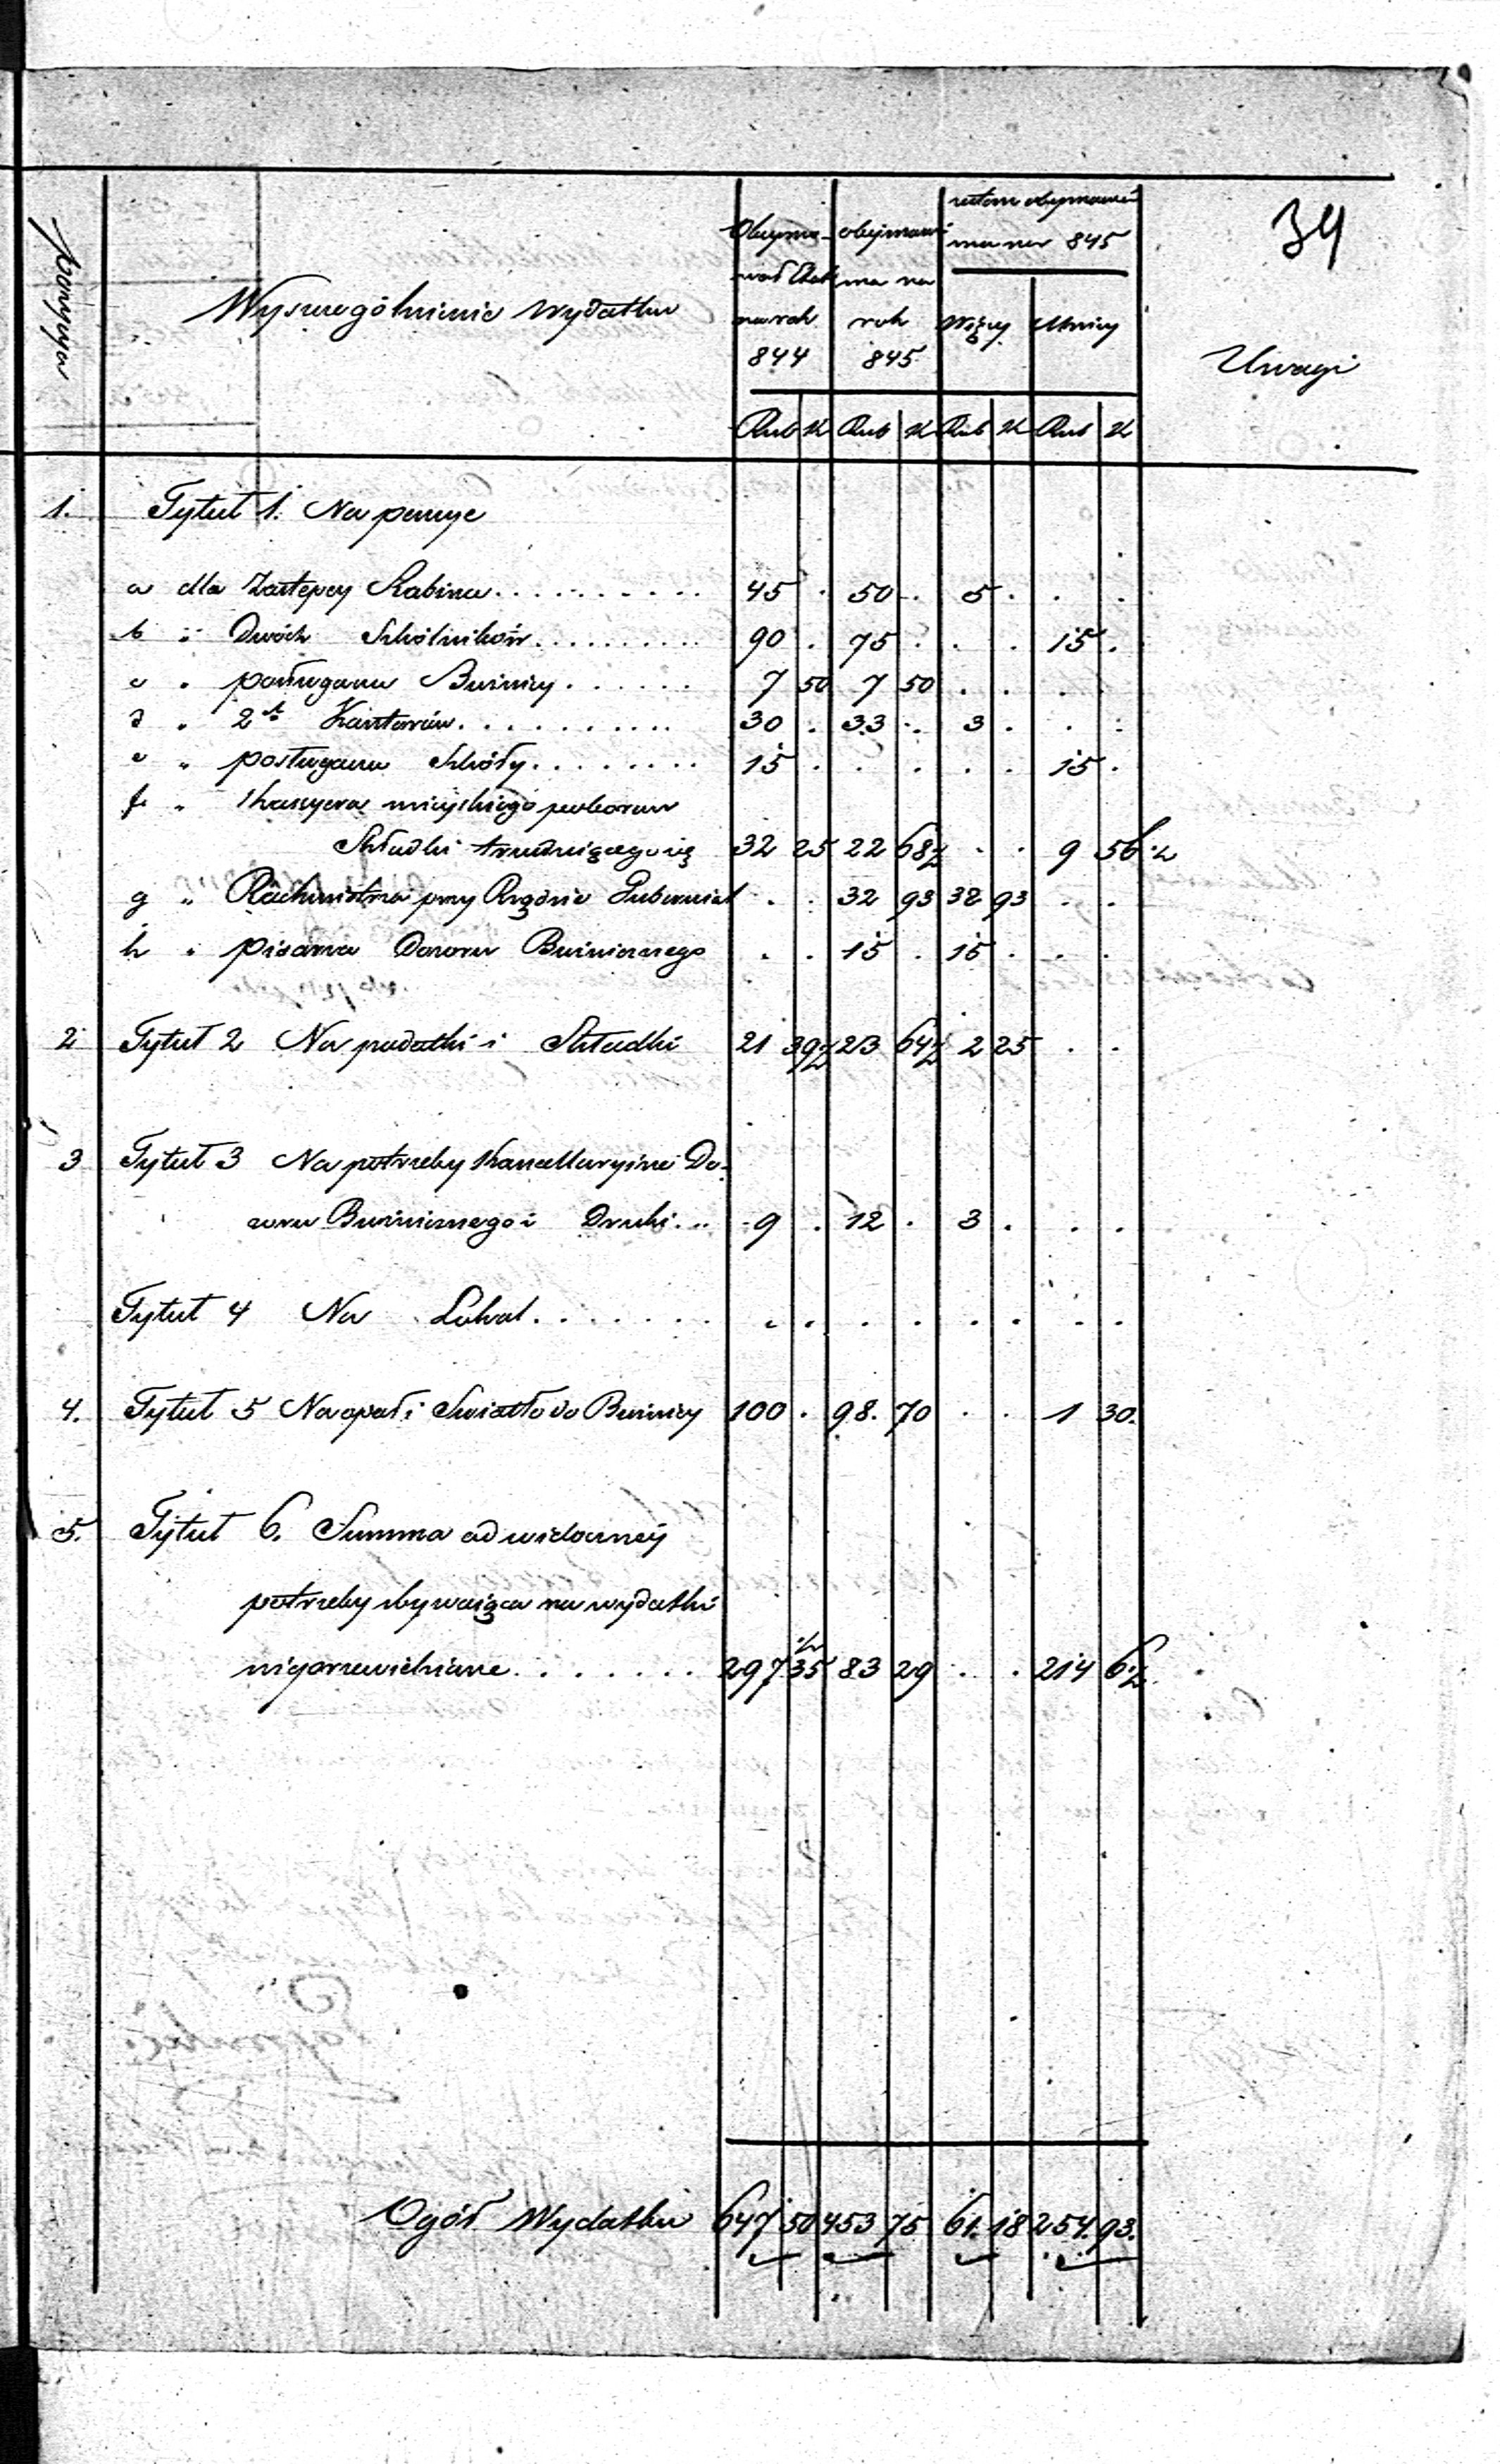 34
Pozycya
Wyszczególnienie wydatku
Obejmował Etat na rok 844
obejmować ma na rok 845
zatem obejmować ma na 845
Więcej Mniej
Uwagi
Rub K Rub K Rub K Rub K
1. Tytuł 1. Na pensye
a dla Zastępcy Rabina . . . . . . . . . . . 45 . 50 . 5 . . .
b " Dwóch Szkólników . . . . . . . . . 90 . 75 . . . 15 .
c " posługacza Bużnicy . . . . . . 7 50 7 50 . . . .
d " 2ch Kantorów . . . . . . . . . 30 . 33 . 3 . . .
e " posługacza Szkoły . . . . . . . . 15 . . . . . 15 .
f " Kassyera miejskiego poborem
Składki trudniącego się 32 25 22 68½ . . 9 56½
g " Rachmistrza przy Rządzie Gubernial . . 32 93 32 93 . .
h " pisarza Dozoru Bużnicznego . . 15 . 15 . . .
2 Tytuł 2 Na podatki i Składki 21 39½ 23 64½ 2 25 . .
3 Tytuł 3 Na potrzeby Kancellaryine Do-
zoru Bużnicznego i Druki . . . 9 . 12 . 3 . . .
Tytuł 4 Na Lokal . . . . . . . . . . . . . . .
4. Tytuł 5 Na opał i Światło do Bużnicy 100 . 98. 70 . . 1 30.
5. Tytuł 6. Summa od widocznej
potrzeby zbywaiąca na wydatki
nieprzewidziane . . . . . . . 297 35½ 83 29 . . 214 6½
Ogół Wydatku 647 50 453 75 61. 18 254. 93.